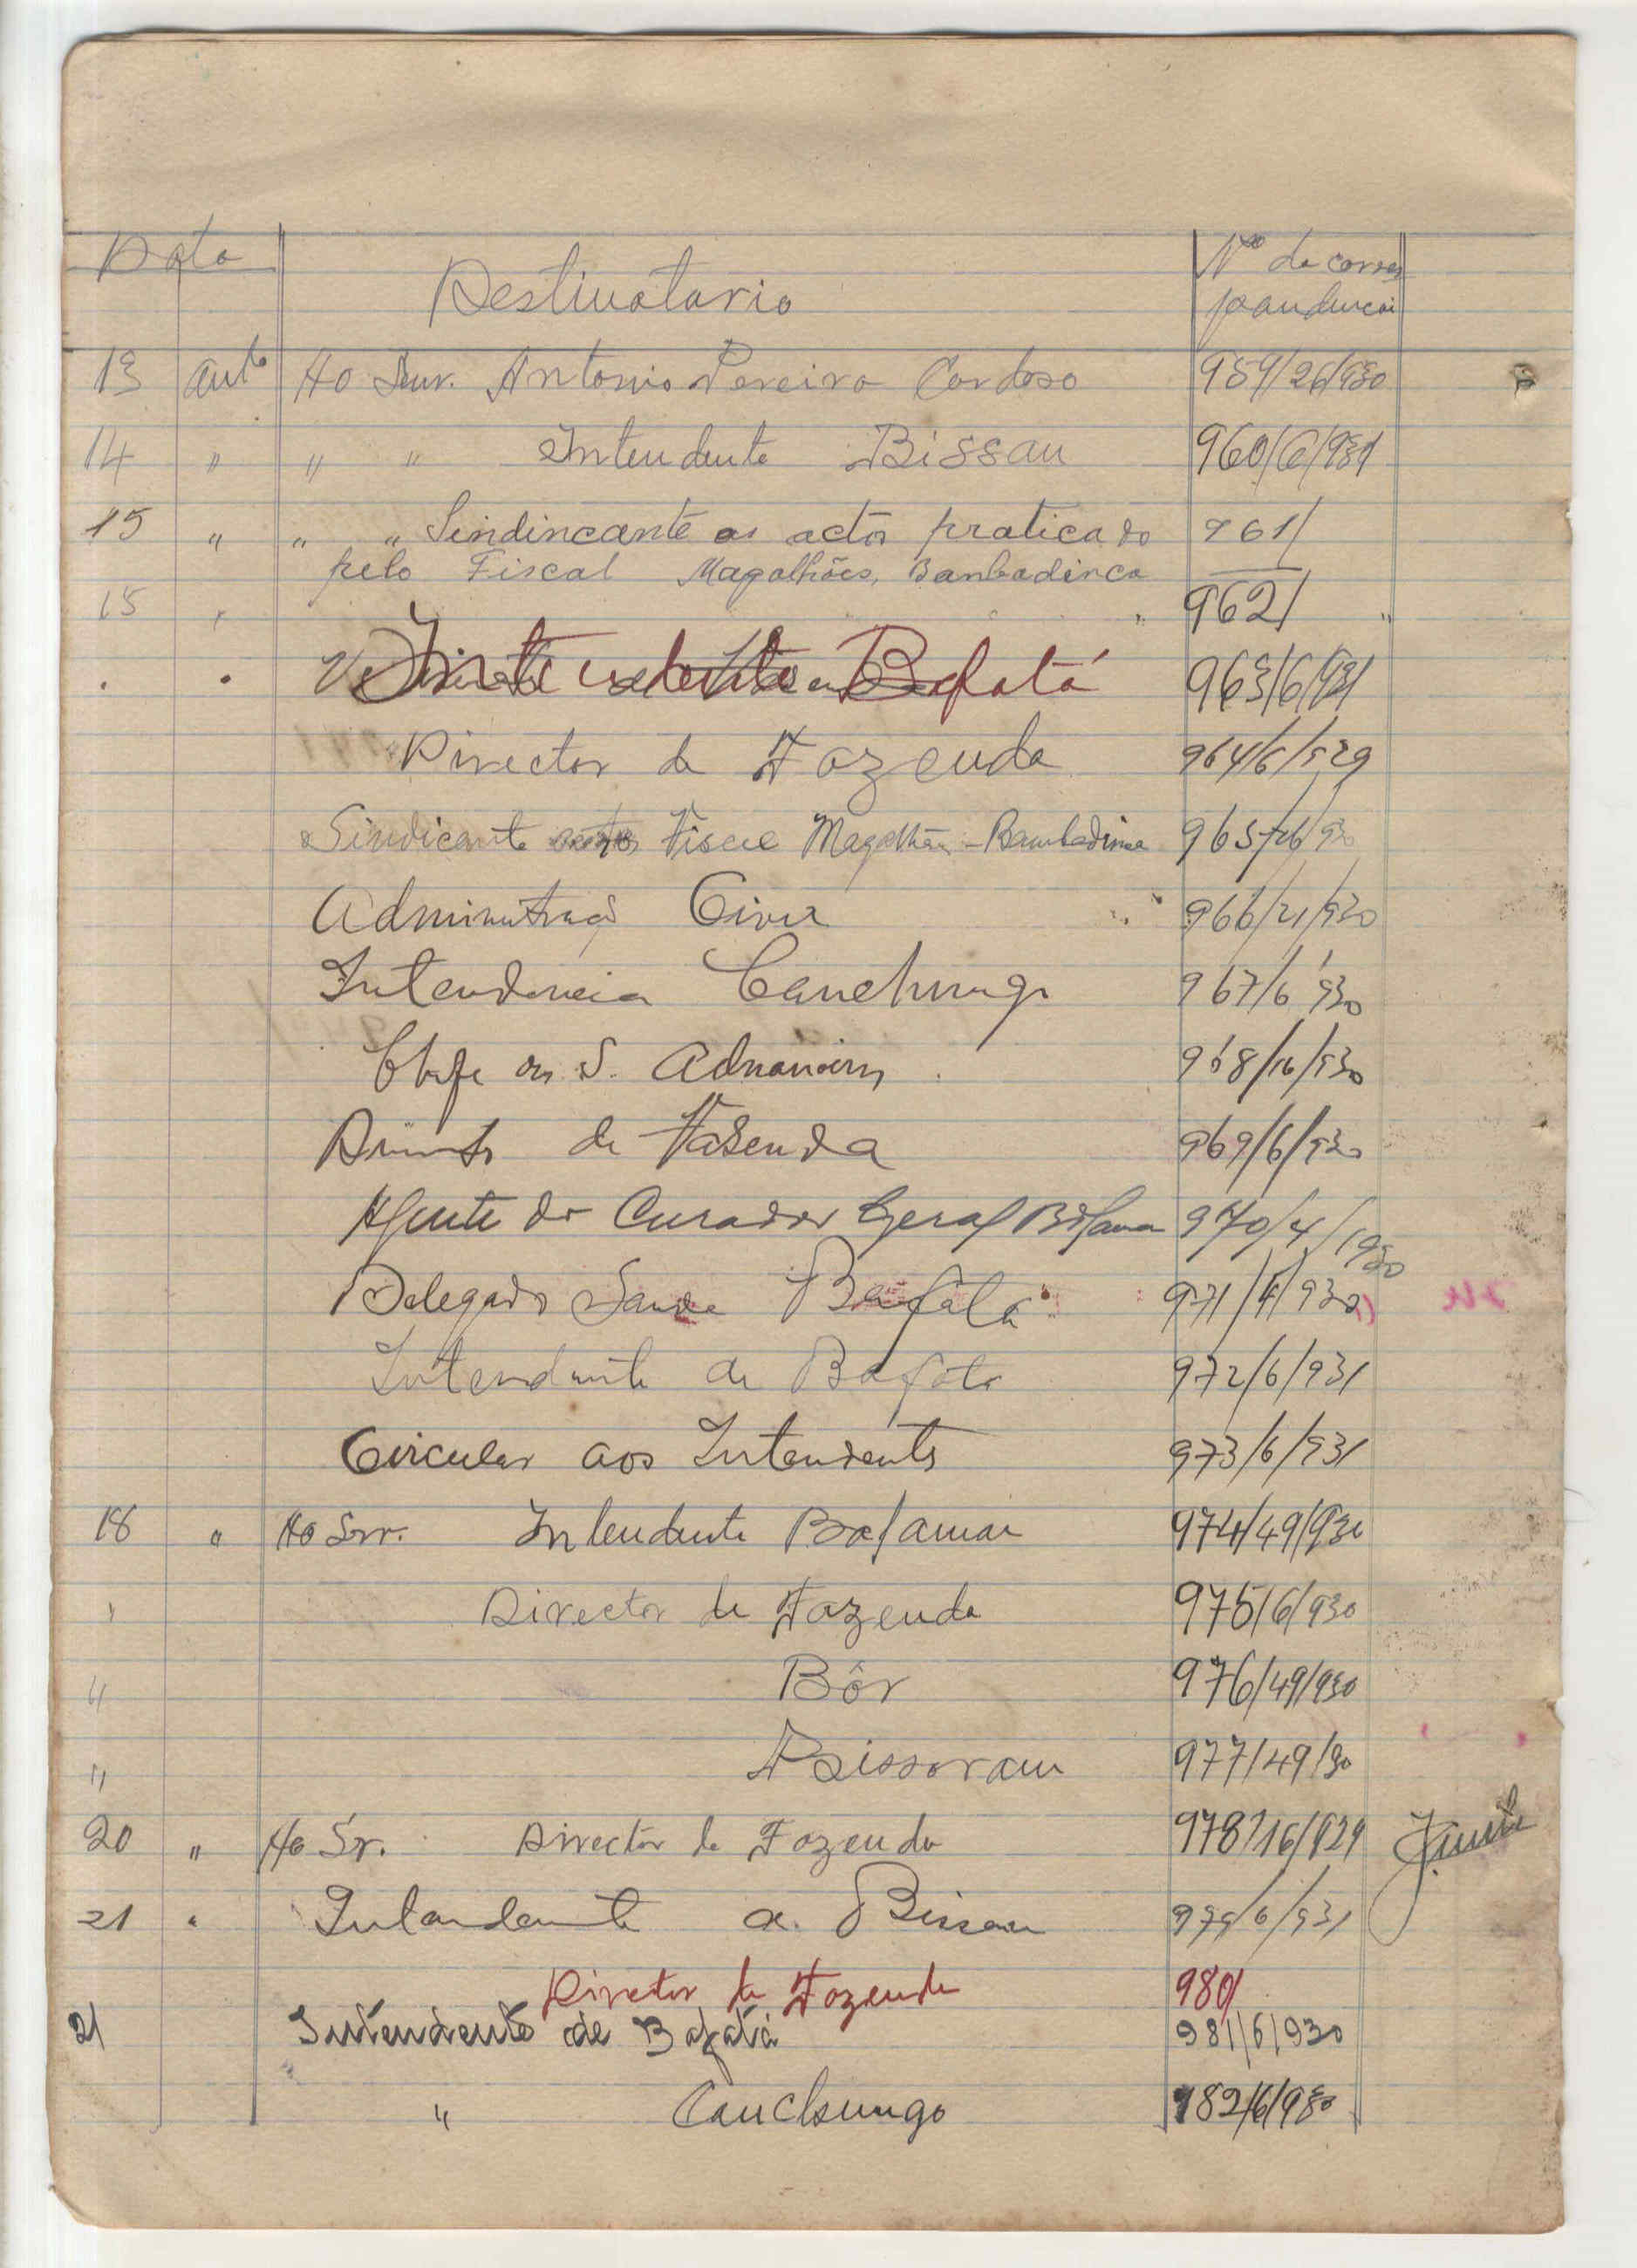 Data Destinatario Nº da corres
pondencia
13 Ao Snr. Antonio Pereira Cardoso 959/26/930
14 " " " Intendente Bissau 960/6/931
15 " " " Sindincante os actos praticado 961/
pelo Fiscal Magalhães, Banbadinca
15 " " 962/ "
Intendente Bafatá 963/6/931
Director de Fazenda 964/6/929
Sindicante Fiscal Magalhães - Bambadinca 965/26/930
Administração Civil 966/21/930
Intendencia Canchungo 967/6/930
Chefe dos S. Aduaneiros 968/16/930
Director de Fasenda 969/6/930
Agente do Curador Geral Bolama 970/4/1930
Delegado Saude Bafatá 971/4/930
Intendente de Bafata 972/6/931
Circular aos Intendents 973/6/931
18 " Ao Snr. Intendente Bafamai 974/49/930
" Director de Fazenda 975/6/930
" Bôr 976/49/930
" Bissoram 977/49/30
20 " Ao Sr. Director de Fazenda 978/16/929
21 " Intendente de Bissau 979/6/931
Diretor de Fazenda 980/
21 Intendente de Bafatá 981/6/930
" Canchungo 982/6/930